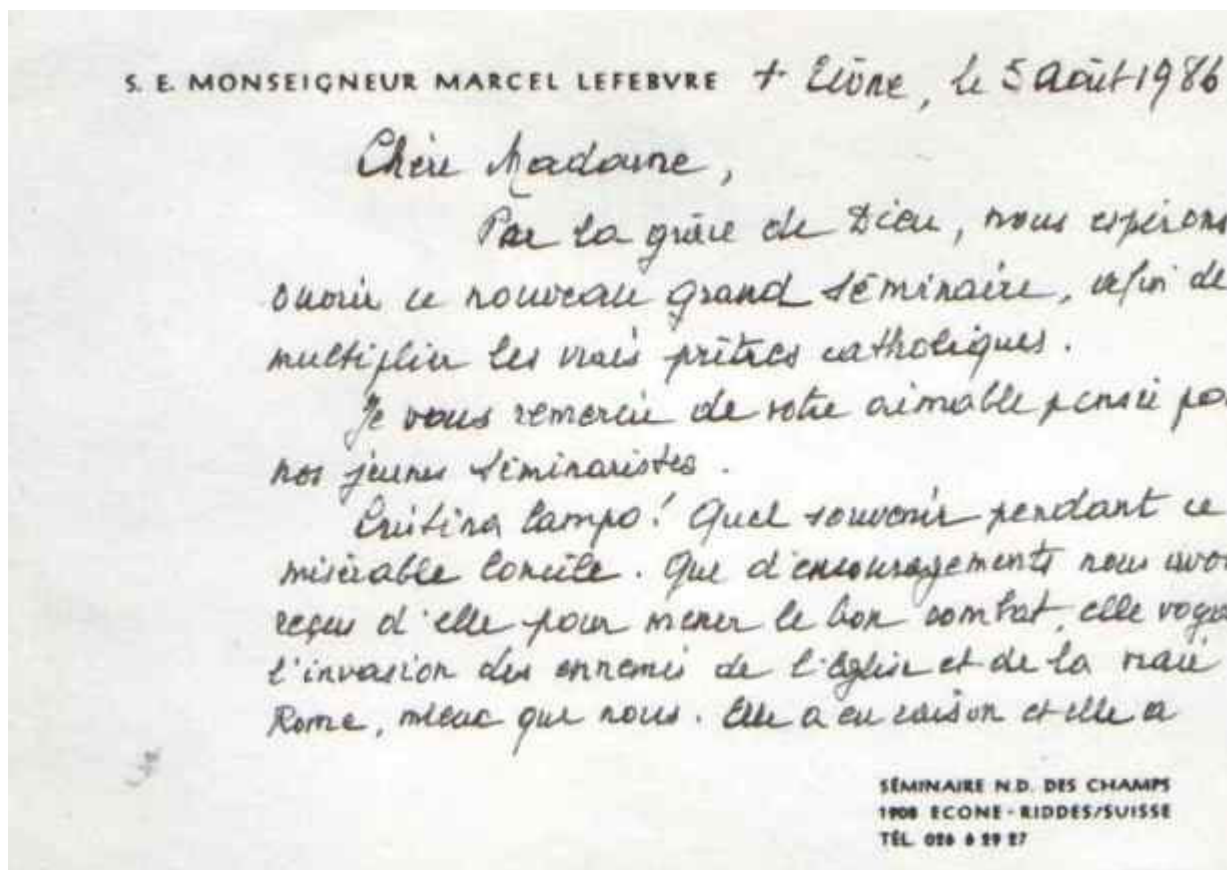 S. E. MONSEIGNEUR MARCEL LEFEBVRE + Ecône, le 5 Août 1986
Chère Madame,
Par la grâce de Dieu, nous espérons
ouvrir ce nouveau grand séminaire, afin de
multiplier les vrais prêtres catholiques.
Je vous remercie de votre aimable pensée po
nos jeunes séminaristes.
Cristina Campo! Quel souvenir pendant ce
misérable Concile. Que d'encouragements nous avo
reçus d'elle pour mener le bon combat, elle voya
l'invasion des ennemis de l'Eglise et de la vraie
Rome, mieux que nous. Elle a eu raison et elle a
SÉMINAIRE N.D. DES CHAMPS
1908 ECONE - RIDDES/SUISSE
TÉL. 026 6 29 27